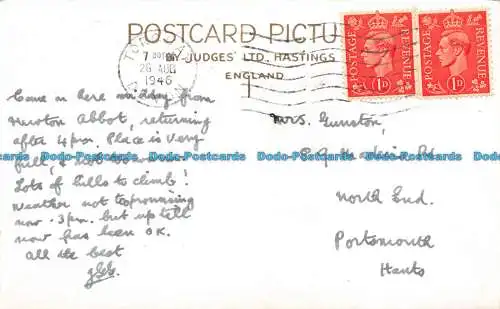 POSTCARD PICTU
BY JUDGES' LTD, HASTINGS
ENGLAND
TOR
7
26 AUG
1946
POSTAGE
REVENUE
1D
POSTAGE
REVENUE
1D
Came on here midday from
Newton Abbot, returning
after 4pm. Place is very
full,
Lots of hills to climb!
Weather not too promising
now - 3pm. but up till
now has been OK.
All the best
Mrs. Gunston,
North End.
Portsmouth
Hants
Dodo-Postcards Dodo-Postcards Dodo-Postcards Dodo-Postcards Dodo-Postcards